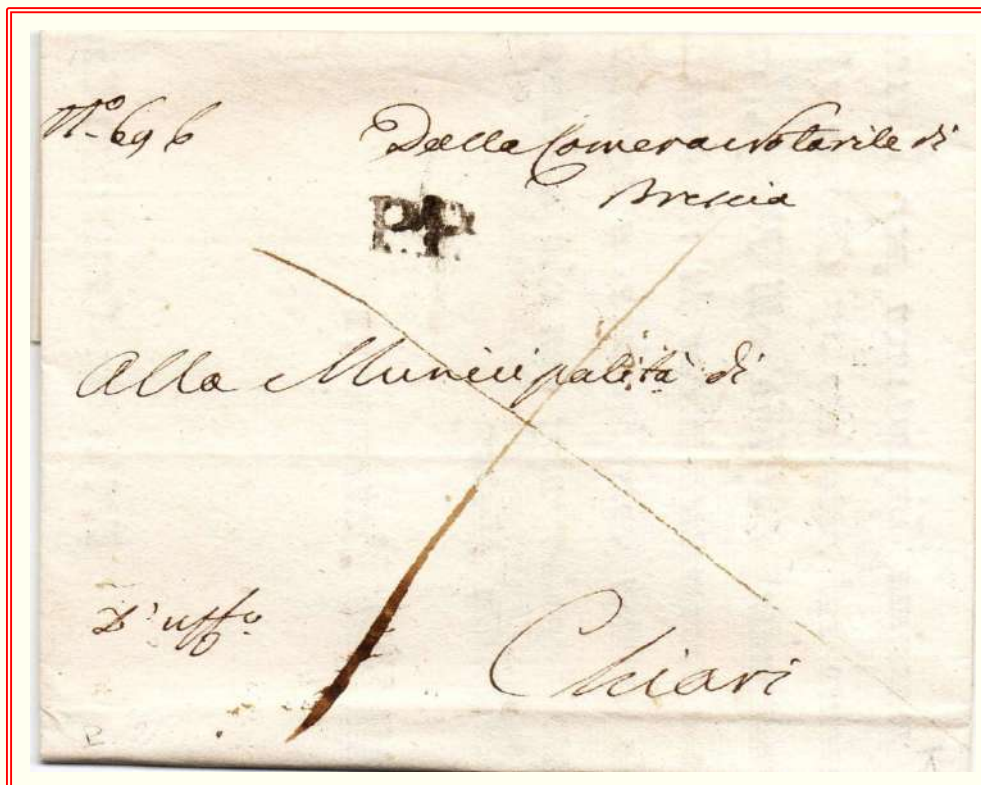 N.o 696
Dalla Camera Notarile di
Brescia
P.P.
Alla Municipalità di
D'uff.o
Chiari